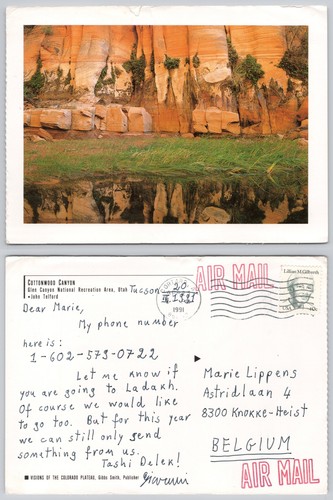 COTTONWOOD CANYON
Glen Canyon National Recreation Area, Utah
•John Telford
Tucson 20
III.1991
AIR MAIL
Lillian M. Gilbreth
USA 40c
1991
Dear Marie,
My phone number
here is:
1-602-579-0722
Let me know if
you are going to Ladakh.
Of course we would like
to go too. But for this year
we can still only send
something from us.
Tashi Delek!
Giovanni
Marie Lippens
Astridlaan 4
8300 Knokke-Heist
BELGIUM
AIR MAIL
VISIONS OF THE COLORADO PLATEAU, Gibbs Smith, Publisher